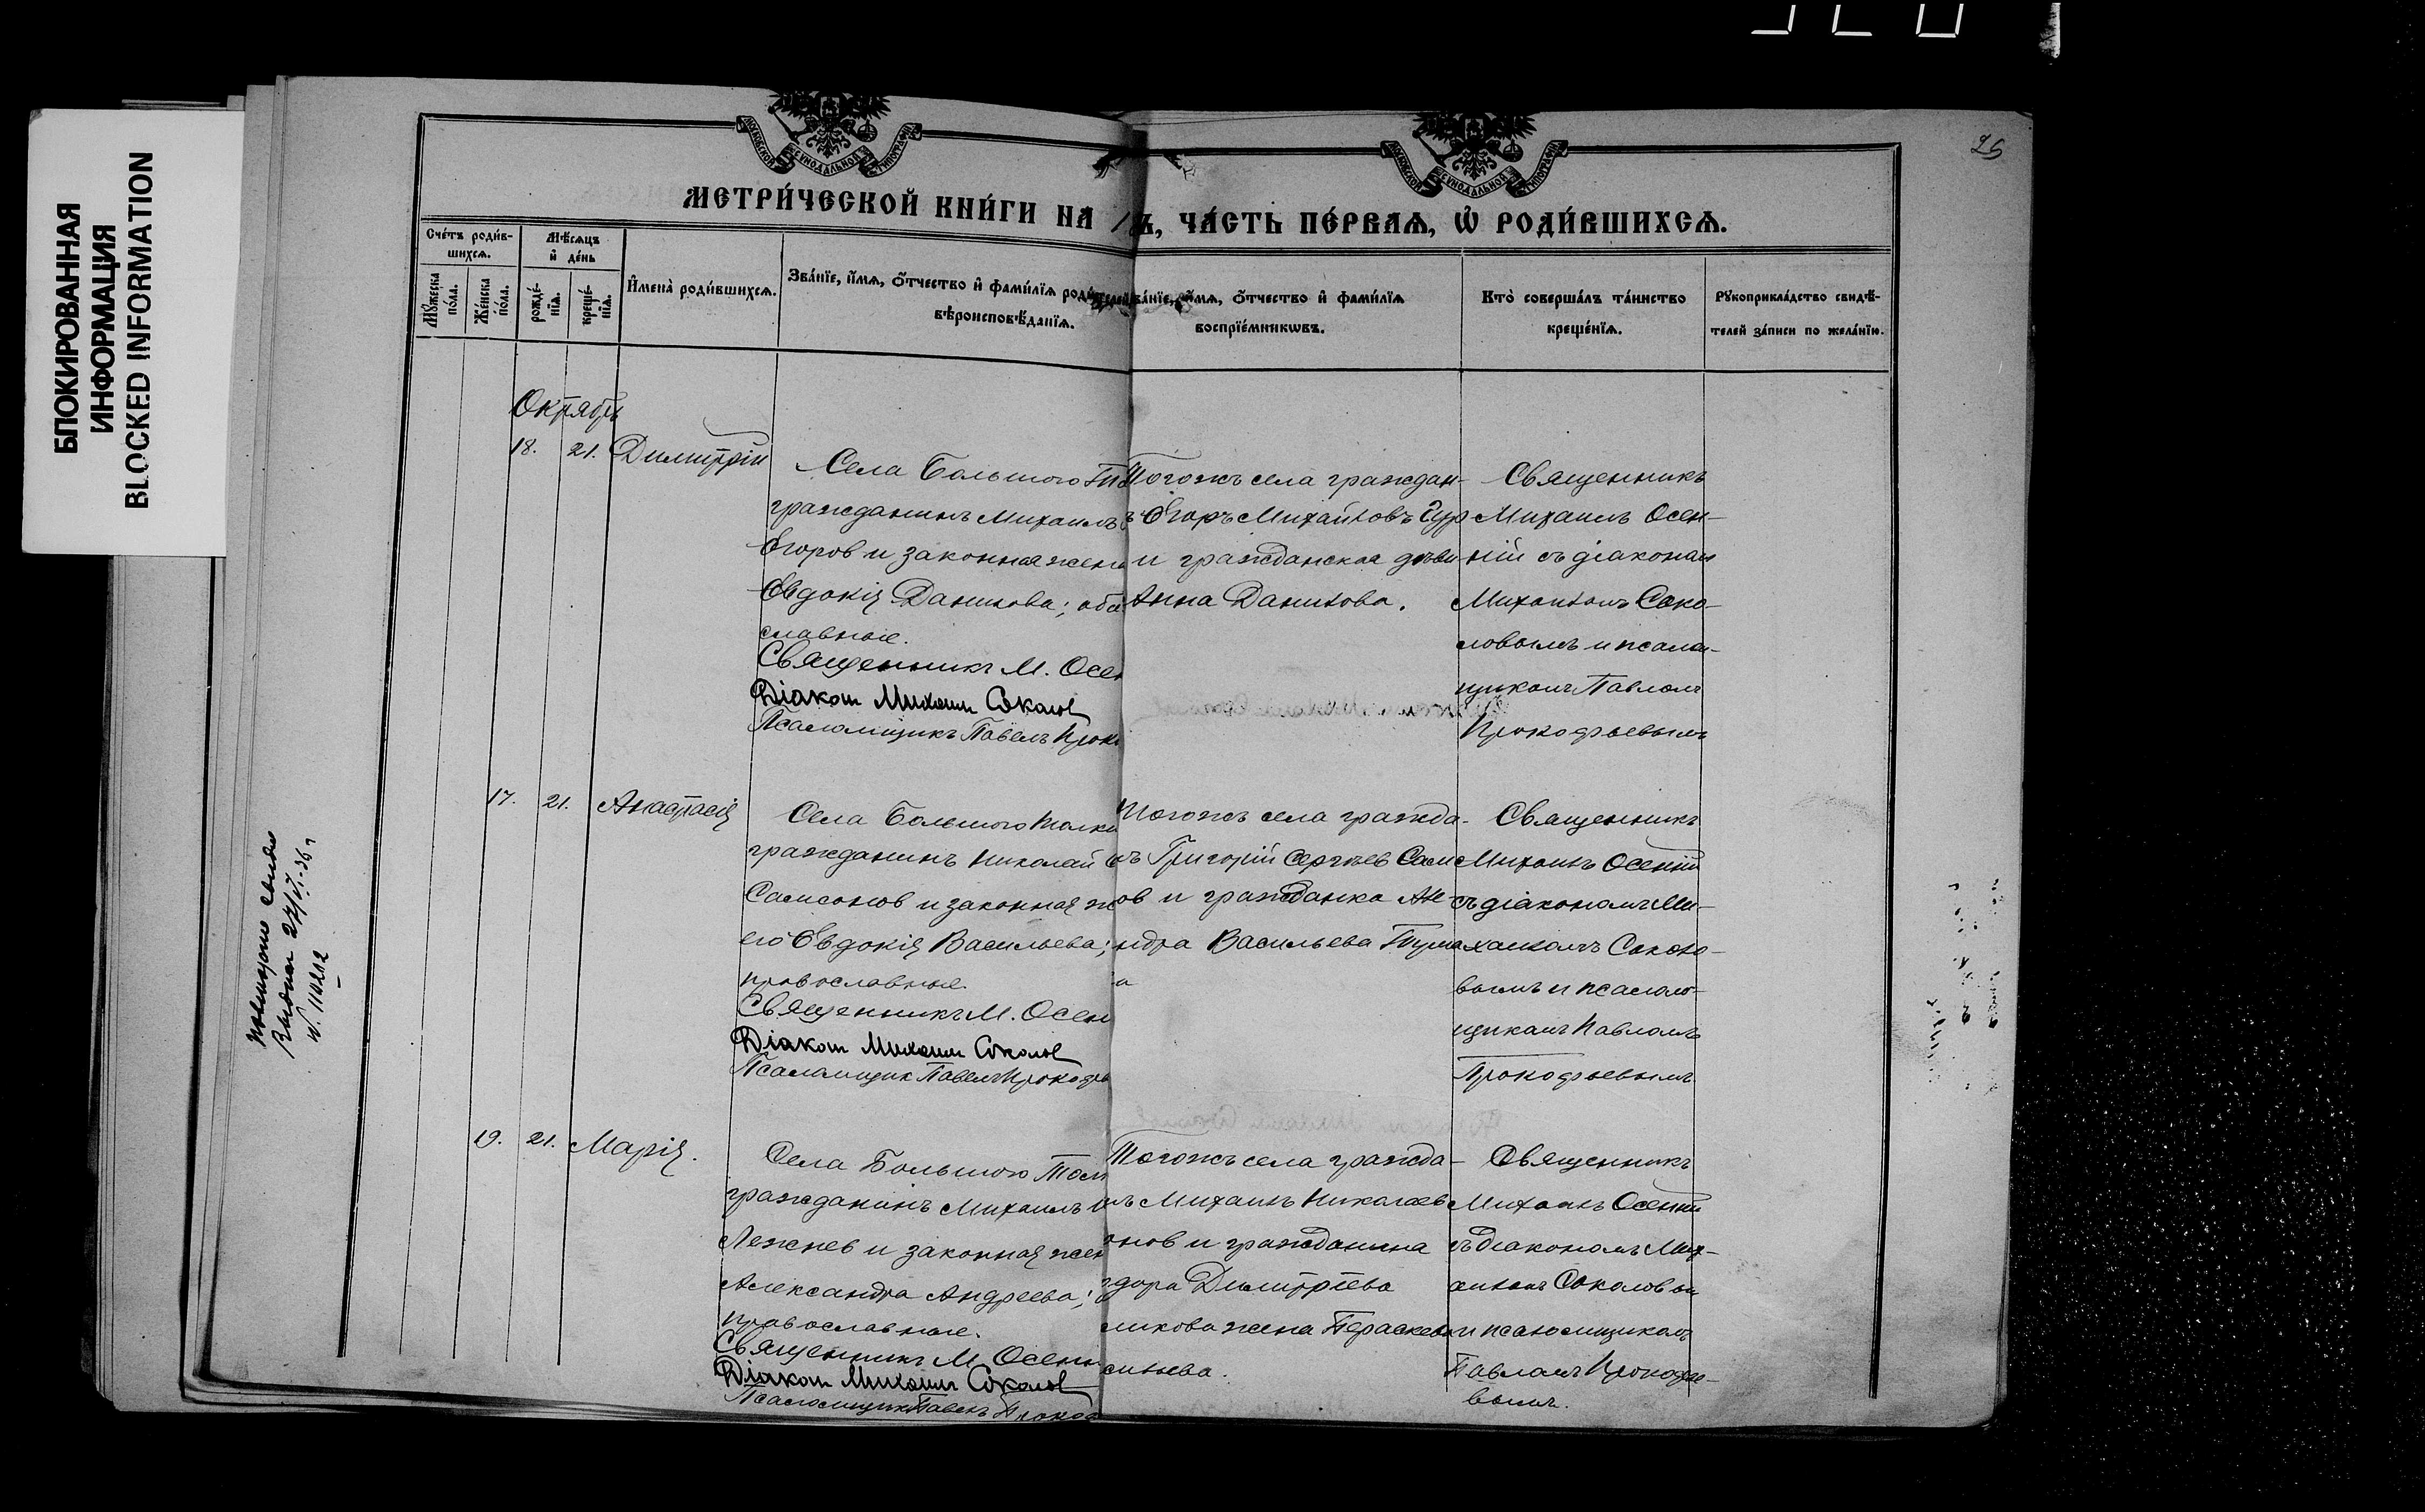 БЛОКИРОВАННАЯ
ИНФОРМАЦИЯ
BLOCKED INFORMATION
26
МЕТРИ́ЧЕСКОЙ КНИ́ГИ НА 1
Ъ, ЧА́СТЬ ПЕ́РВАѦ, Ѡ РОДИ́ВШИХСѦ.
Сче́тъ роди́в-
шихсѧ.
Мѣ́сѧцъ
и҆ де́нь
Мꙋ́жеска
по́ла.
Же́нска
по́ла.
рожде́-
нїѧ.
креще́-
нїѧ.
И҆мена̀ роди́вшихсѧ.
Зва́нїе, и҆́мѧ, ѻ҆́тчество и҆ фами́лїѧ
вѣроисповѣ́данїѧ.
и҆́мѧ, ѻ҆́тчество и҆ фами́лїѧ
воспрїе́мникѡвъ.
Кто̀ соверша́лъ та́инство
креще́нїѧ.
Рꙋкоприкла́дство свидѣ́-
телей за́писи по жела́нїю.
Октябрь
18. 21. Димитрій
Села Большого
гражданинъ Михаилъ
Егоров и законная жена
Евдокія Данилова;
славные.
Священникъ М. Осен
Діакон Михаил Соколов
Псаломщикъ Павелъ Проко
Тогожъ села граждан-
Егоръ Михайловъ Гур
и гражданская дѣви
Анна Данилова.
Священникъ
Михаилъ Осен-
ній съ діаконом
Михаиломъ Соко-
ловымъ и псалом-
щикомъ Павломъ
Прокофьевымъ
17. 21. Анастасія
Села Большого Толка
гражданинъ Николай
Самсонов и законная ж
его Евдокія Васильева;
православные.
Священникъ М. Осен
Діакон Михаил Соколов
Псаломщик Павелъ Прокофь
Тогожъ села гражда-
ъ Григорій Сергѣев Сам
ов и гражданка Але-
ндра Васильева
а
Священникъ
Михаилъ Осенній
съ діакономъ Ми-
хаиломъ Соколо-
вымъ и псаломо-
щикомъ Павломъ
Прокофьевымъ
19. 21. Марія.
Села Большого Тол
гражданинъ Михаилъ
Лежнев и законная жен
Александра Андреева;
православные.
Священникъ М. Осенн
Діакон Михаил Соколов
Псаломщикъ Павелъ Прокоф
Тогожъ села гражда-
нъ Михаилъ Николаев
онов и гражданина
дора Димитріева
ликова жена Параскева
сильева.
Священникъ
Михаилъ Осенній
съ діакономъ Мих-
аилом Соколовым
и псаломщикомъ
Павломъ Прокофье-
вымъ.